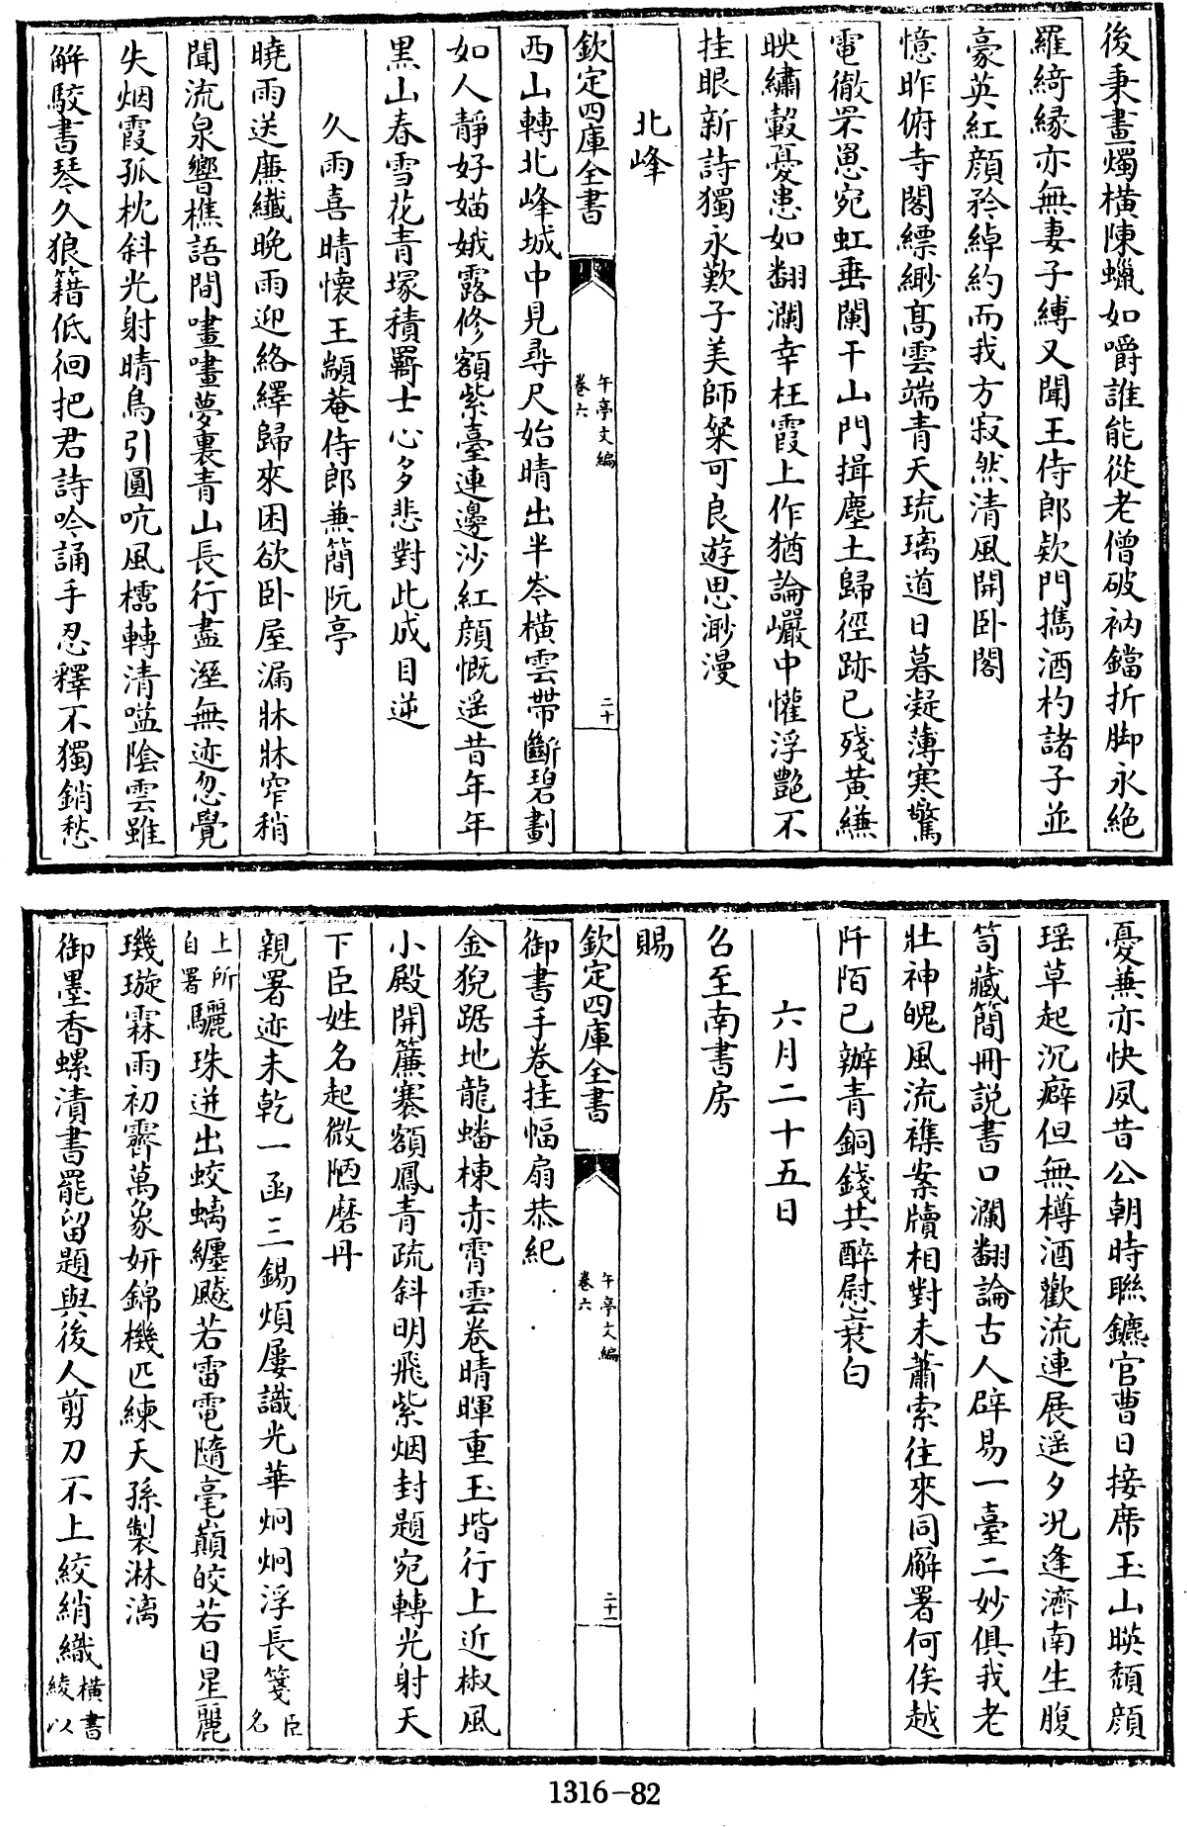 後秉畫燭橫陳蠟如嚼誰能從老僧破衲鐺折脚永絶
羅綺縁亦無妻子縛又聞王侍郎欵門攜酒杓諸子並
豪英紅顔矜綽約而我方寂然清風開卧閣
憶昨俯寺閣縹緲髙雲端青天琉璃道日暮凝薄寒驚
電徹罘罳宛虹垂闌干山門揖塵土歸徑跡已殘黄縑
映繡轂憂患如翻瀾幸枉霞上作猶論巖中懽浮艶不
挂眼新詩獨永歎子美師粲可良遊思渺漫
北峰
欽定四庫全書
午亭文編
卷六
二十
西山轉北峰城中見尋尺始晴出半岑橫雲帶斷碧劃
如人靜好媌娥露修額紫臺連邊沙紅顔慨遥昔年年
黒山春雪花青塚積羇士心多悲對此成目逆
久雨喜晴懷王顓菴侍郎兼簡阮亭
曉雨送廉纖晚雨迎絡繹歸來困欲卧屋漏牀牀窄稍
聞流泉響樵語間畫畫夢裏青山長行盡溼無迹忽覺
失烟霞孤枕斜光射晴鳥引圓吭風櫺轉清嗌陰雲雖
解駮書琴久狼籍低徊把君詩吟誦手忍釋不獨銷愁
憂兼亦快夙昔公朝時聯鑣官曹日接席玉山暎頽顔
瑶草起沉癖但無樽酒歡流連展遥夕况逢濟南生腹
笥藏簡冊説書口瀾翻論古人辟易一臺二妙俱我老
壯神魄風流襍案牘相對未蕭索往來同廨署何俟越
阡陌已辦青銅錢共醉慰衰白
六月二十五日
召至南書房
賜
欽定四庫全書
午亭文編
卷六
二十一
御書手卷挂幅扇恭紀
金猊踞地龍蟠棟赤霄雲卷晴暉重玉堦行上近椒風
小殿開簾褰額鳳青疏斜明飛紫烟封題宛轉光射天
下臣姓名起微陋磨丹
親署迹未乾一函三錫煩屢識光華炯炯浮長箋臣名
上所自署驪珠迸出蛟螭纏飈若雷電隨毫巔皎若日星麗
璣璇霖雨初霽萬象妍錦機匹練天孫製淋漓
御墨香螺漬書罷留題與後人剪刀不上絞綃織橫書綾以
1316-82